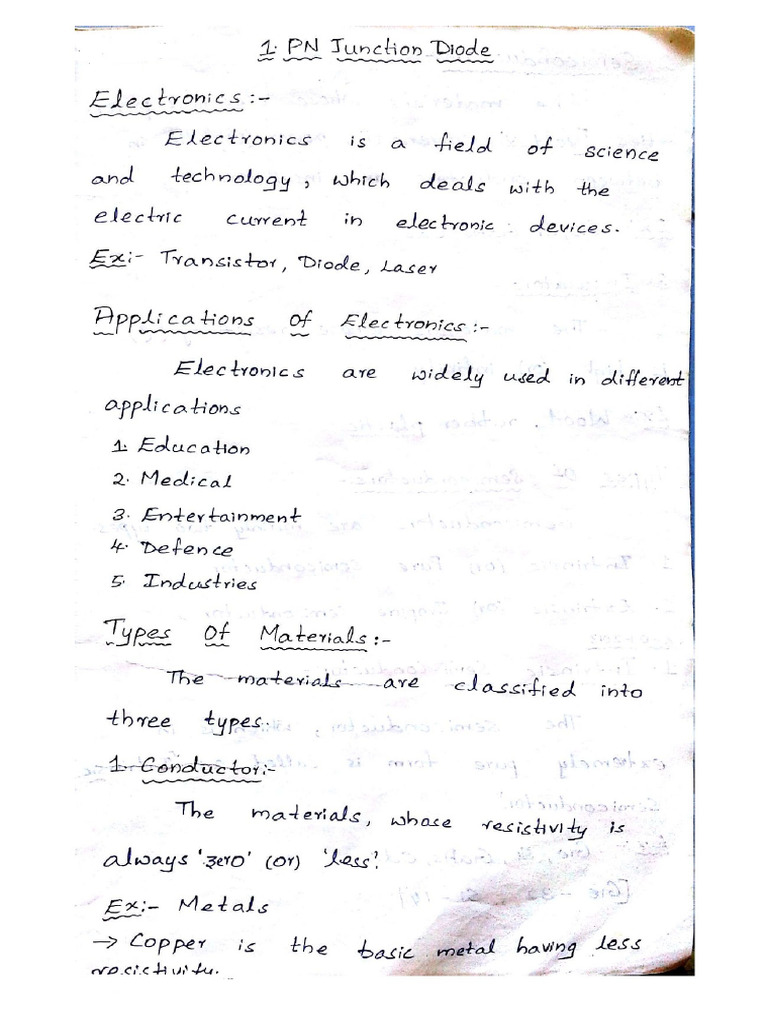 1. PN Junction Diode
Electronics:-
Electronics is a field of science
and technology, which deals with the
electric current in electronic devices.
Ex:- Transistor, Diode, Laser
Applications Of Electronics:-
Electronics are widely used in different
applications
1. Education
2. Medical
3. Entertainment
4. Defence
5. Industries
Types Of Materials:-
The materials are classified into
three types.
1. Conductor:-
The materials, whose resistivity is
always 'zero' (or) 'less'.
Ex:- Metals
→ Copper is the basic metal having less
resistivity.